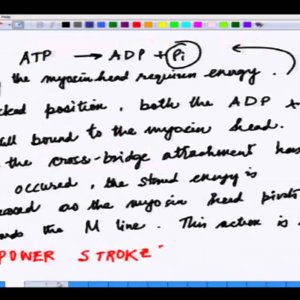 ATP → ADP + Pi
the myosin head requires energy.
cked position, both the ADP +
ll bound to the myosin head.
the cross-bridge attachment has
occured, the stored energy is
eased as the myosin head pivots
ards the M line. This action is
POWER STROKE